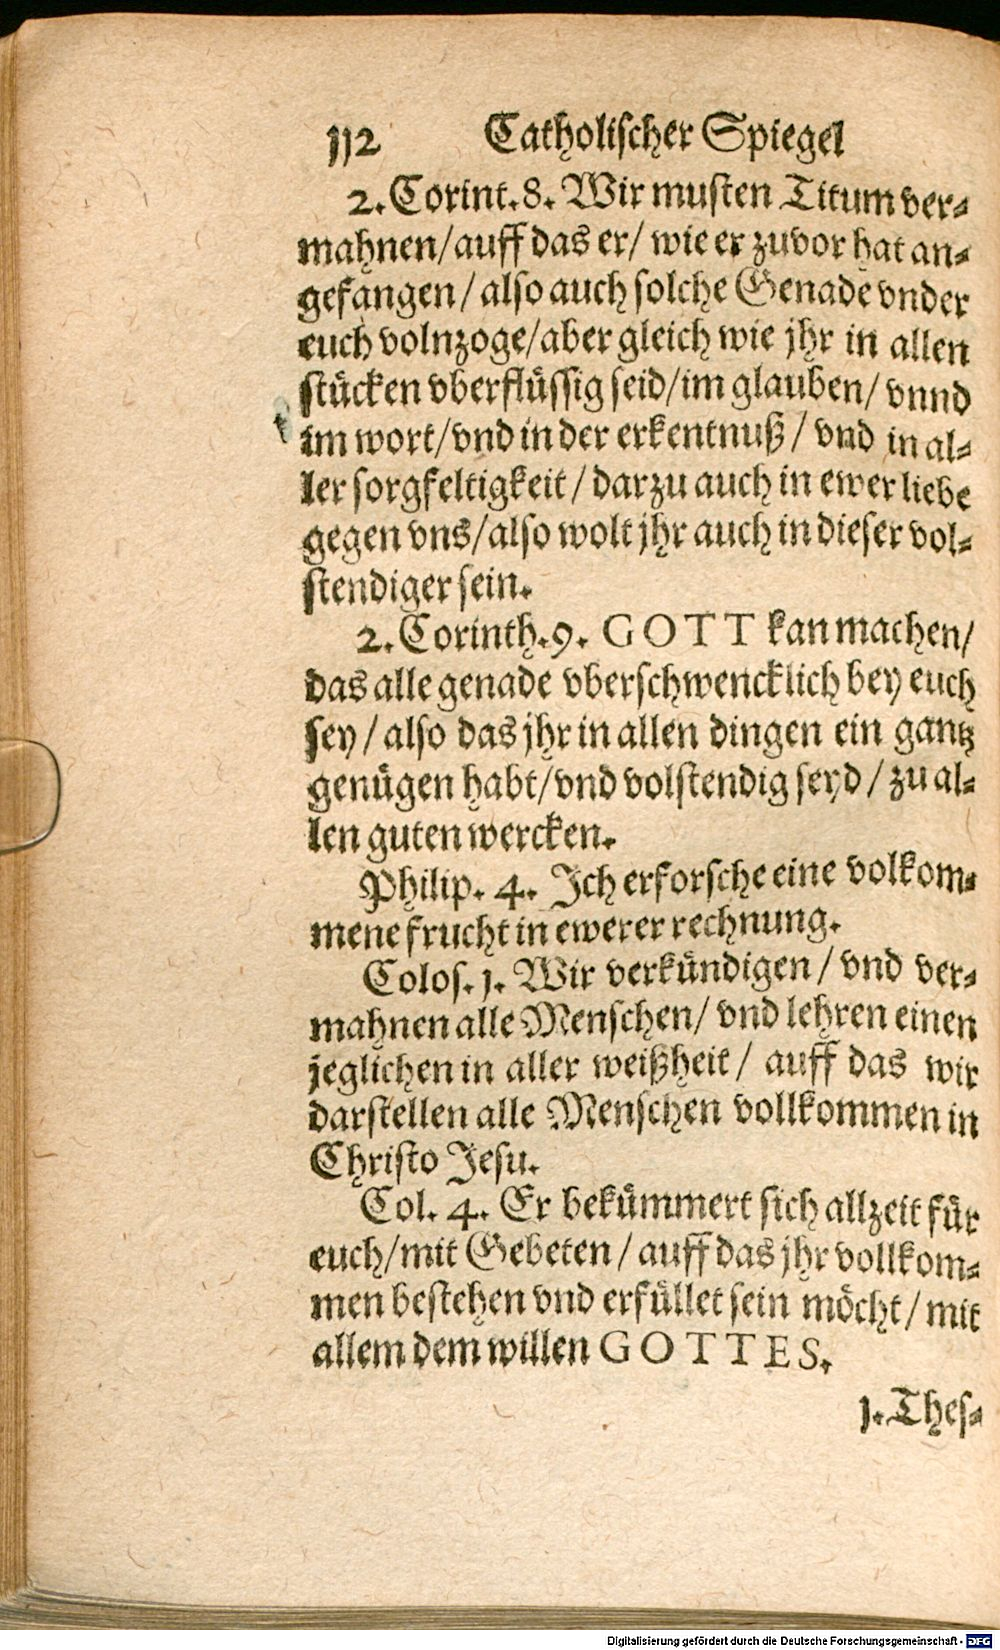 112 Catholischer Spiegel
2. Corint. 8. Wir musten Titum ver-
mahnen/auff das er/ wie er zuvor hat an-
gefangen/ also auch solche Genade vnder
euch volnzoge/aber gleich wie jhr in allen
stücken vberflüssig seid/im glauben/ vnnd
im wort/vnd in der erkentnuß/ vnd in al-
ler sorgfeltigkeit/ darzu auch in ewer liebe
gegen vns/also wolt jhr auch in dieser vol-
stendiger sein.
2. Corinth. 9. GOTT kan machen/
das alle genade vberschwencklich bey euch
sey/ also das jhr in allen dingen ein gantz
genügen habt/vnd volstendig seyd/ zu al-
len guten wercken.
Philip. 4. Ich erforsche eine volkom-
mene frucht in ewerer rechnung.
Colos. 1. Wir verkündigen/ vnd ver-
mahnen alle Menschen/ vnd lehren einen
jeglichen in aller weißheit/ auff das wir
darstellen alle Menschen vollkommen in
Christo Jesu.
Col. 4. Er bekümmert sich allzeit für
euch/mit Gebeten/ auff das jhr vollkom-
men bestehen vnd erfüllet sein möcht/ mit
allem dem willen GOTTES.
1. Thes-
Digitalisierung gefördert durch die Deutsche Forschungsgemeinschaft - DFG